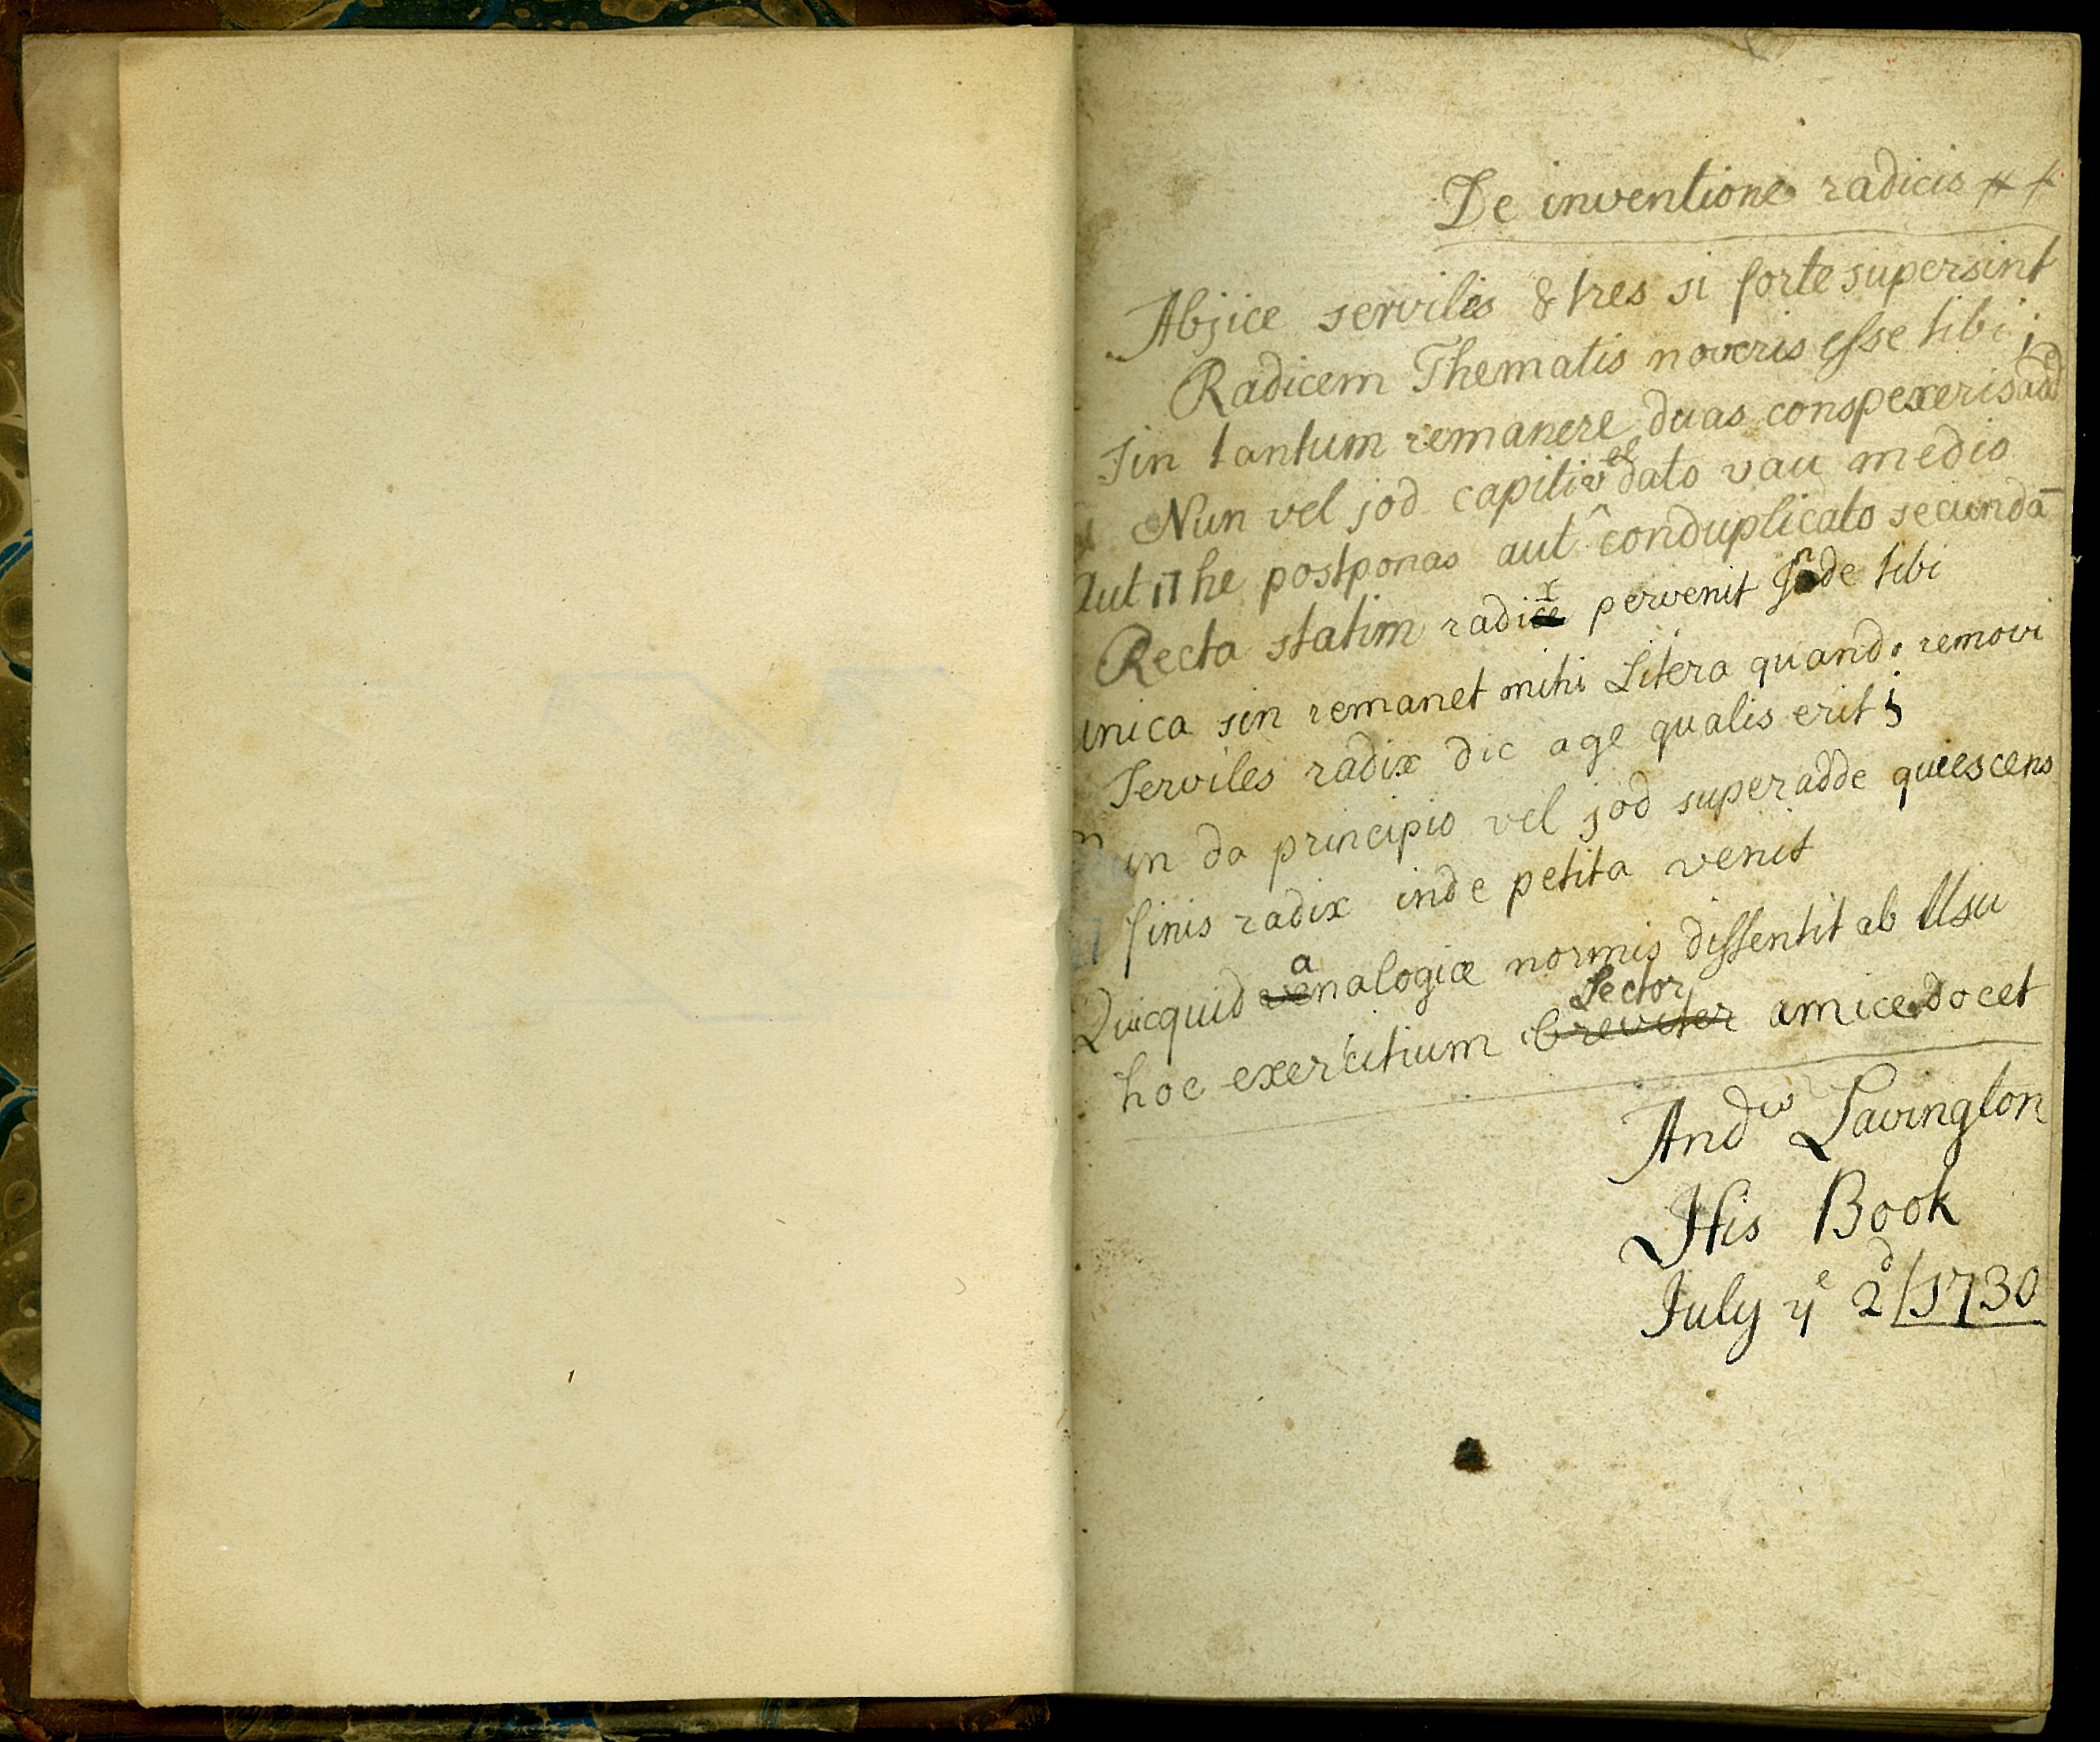 De inventione radicis
Abjice serviles & tres si forte supersint
Radicem Thematis noveris esse tibi;
Sin tantum remanere duas conspexeris adde
Nun vel jod capiti vel dato vau medio
Aut ה he postponas aut conduplicato secundā
Recta statim radix pervenit Inde tibi
unica sin remanet mihi Litera quando removi
Serviles radix dic age qualis erit;
in da principio vel jod superadde quiescens
finis radix inde petita venit
Quicquid analogiæ normis dissentit ab Usu
hoc exercitium Lector breviter amice docet
Andw Lavington
His Book
July ye 2d/1730